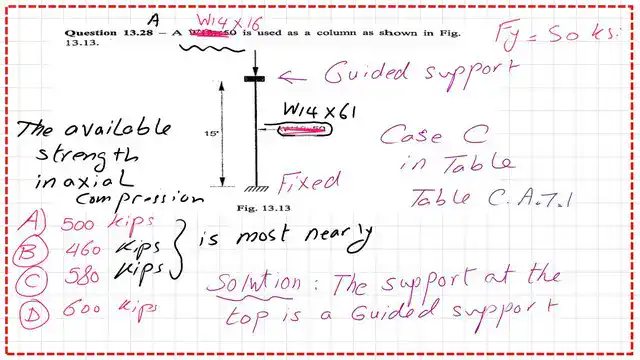 A W14×16
Question 13.28 – A is used as a column as shown in Fig.
13.13.
Fy = 50 ksi
Guided support
W14×61
15'
Fixed
Fig. 13.13
Case C
in Table
Table C.A.7.1
The available
strength
in axial
compression
A) 500 kips
B 460 kips
C 580 kips
D 600 kips
is most nearly
Solution: The support at the
top is a Guided support